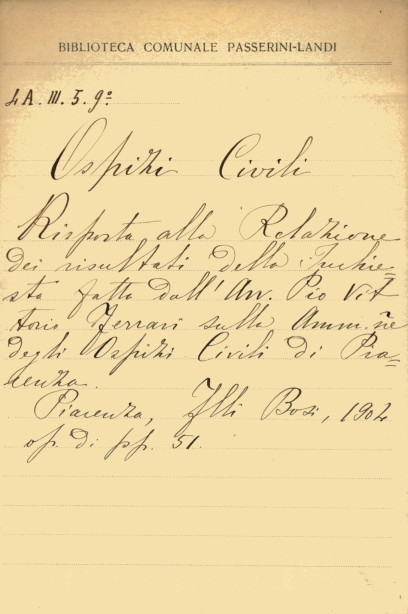 BIBLIOTECA COMUNALE PASSERINI-LANDI
4A. III. 5. 9º
Ospizi Civili
Risposta alla Relazione
dei risultati della Inchie=
sta fatta dall'Avv. Pio Vit
torio Ferrari sulla Amm.ñe
degli Ospizi Civili di Pia=
cenza.
Piacenza, Flli Bosi, 1902
op. di pp. 51.